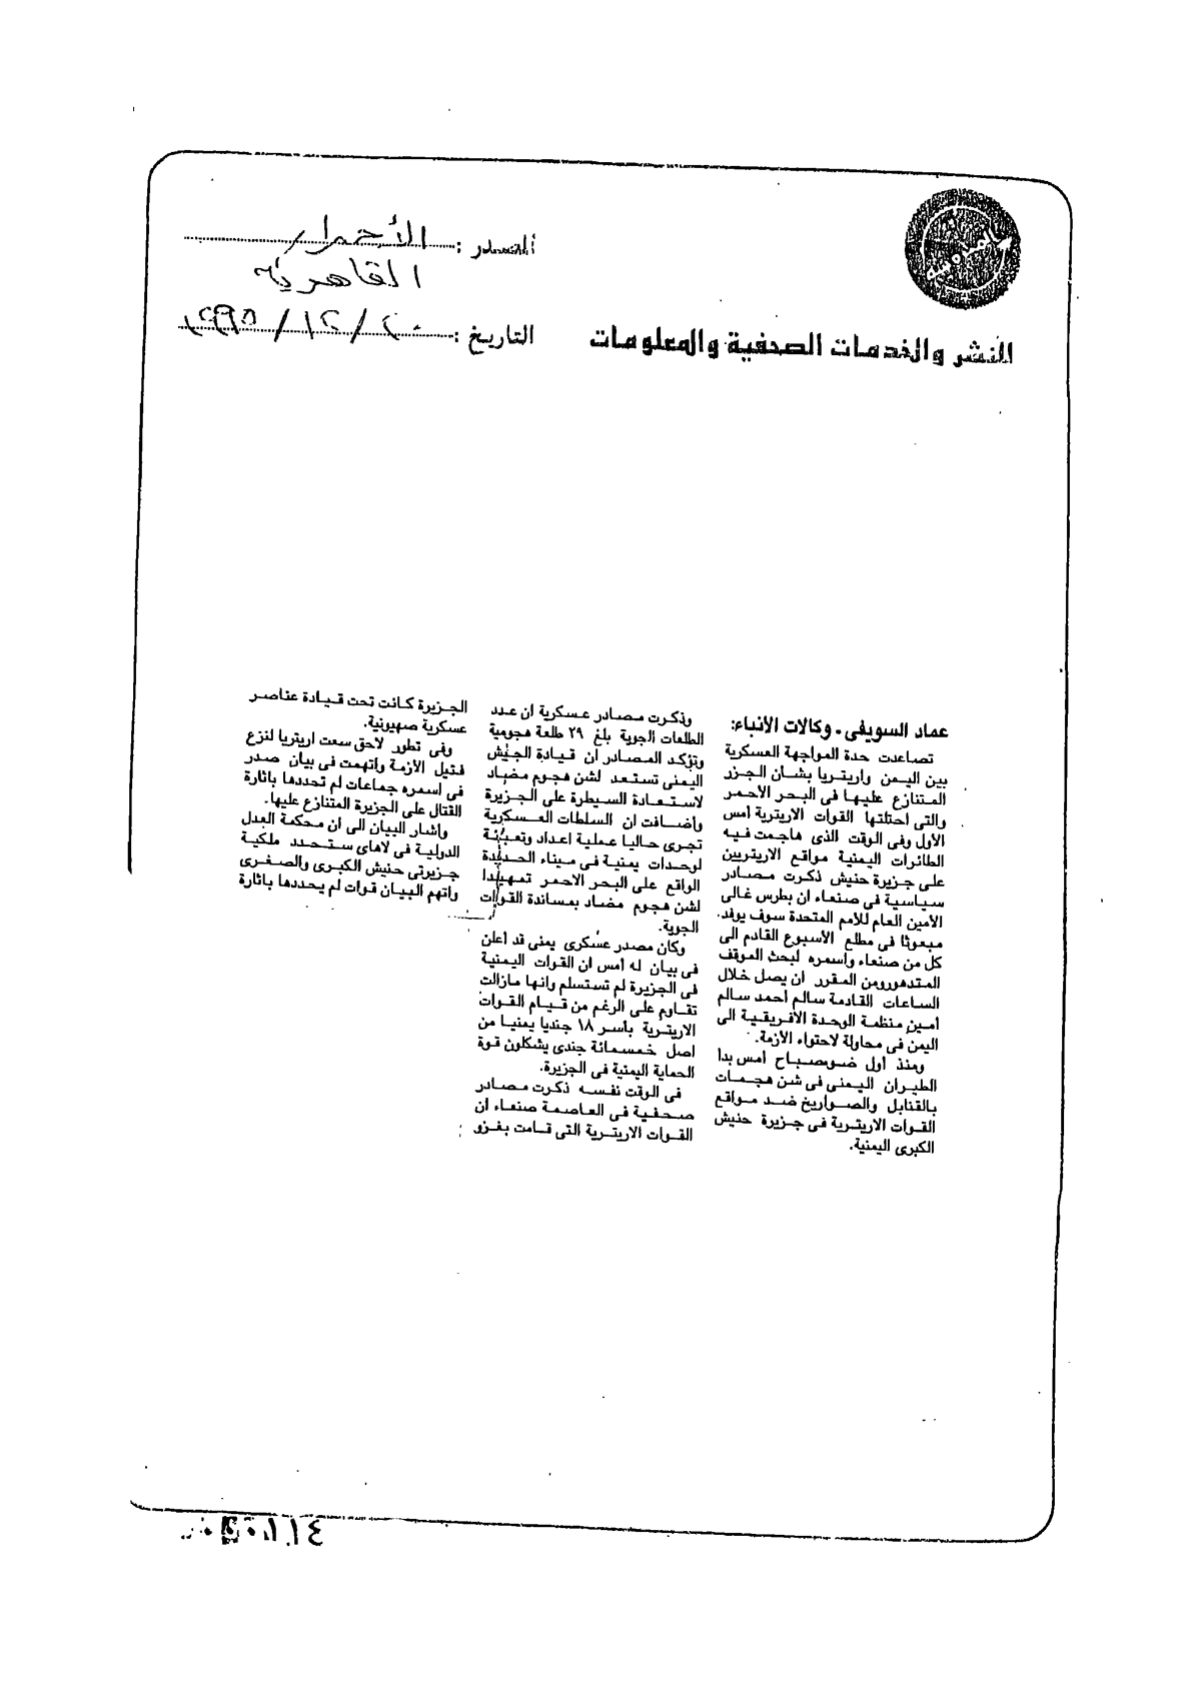 المصدر : الأحرار
القاهرية
التاريخ : ٢٠ / ١٢ / ١٩٩٥
للنشر والخدمات الصحفية والمعلومات
عماد السويفى - وكالات الأنباء:
تصاعدت حدة المواجهة العسكرية
بين اليمن واريتريا بشان الجزر
المتنازع عليها فى البحر الأحمر
والتى احتلتها القوات الاريترية أمس
الأول وفى الوقت الذى هاجمت فيه
الطائرات اليمنية مواقع الاريتريين
على جزيرة حنيش ذكرت مصادر
سياسية فى صنعاء ان بطرس غالى
الأمين العام للأمم المتحدة سوف يوفد
مبعوثا فى مطلع الأسبوع القادم الى
كل من صنعاء وأسمره لبحث الموقف
المتدهورومن المقرر ان يصل خلال
الساعات القادمة سالم أحمد سالم
أمين منظمة الوحدة الافريقية الى
اليمن فى محاولة لاحتواء الأزمة.
ومنذ أول ضوصباح أمس بدأ
الطيران اليمنى فى شن هجمات
بالقنابل والصواريخ ضد مواقع
القوات الاريترية فى جزيرة حنيش
الكبرى اليمنية.
وذكرت مصادر عسكرية ان عدد
الطلعات الجوية بلغ ٢٩ طلعة هجومية
وتؤكد المصادر ان قيادة الجيش
اليمنى تستعد لشن هجوم مضاد
لاستعادة السيطرة على الجزيرة
وأضافت ان السلطات العسكرية
تجرى حاليا عملية اعداد وتعبئة
لوحدات يمنية فى ميناء الحديدة
الواقع على البحر الاحمر تمهيدا
لشن هجوم مضاد بمساندة القوات
الجوية.
وكان مصدر عسكرى يمنى قد أعلن
فى بيان له أمس ان القوات اليمنية
فى الجزيرة لم تستسلم وانها مازالت
تقاوم على الرغم من قيام القوات
الاريترية بأسر ١٨ جنديا يمنيا من
اصل خمسمائة جندى يشكلون قوة
الحماية اليمنية فى الجزيرة.
فى الوقت نفسه ذكرت مصادر
صحفية فى العاصمة صنعاء ان
القوات الاريترية التى قامت بغزو
الجزيرة كانت تحت قيادة عناصر
عسكرية صهيونية.
وفى تطور لاحق سعت اريتريا لنزع
فتيل الأزمة واتهمت فى بيان صدر
فى اسمره جماعات لم تحددها باثارة
القتال على الجزيرة المتنازع عليها.
وأشار البيان الى ان محكمة العدل
الدولية فى لاهاى ستحدد ملكية
جزيرتى حنيش الكبرى والصغرى
واتهم البيان قوات لم يحددها باثارة